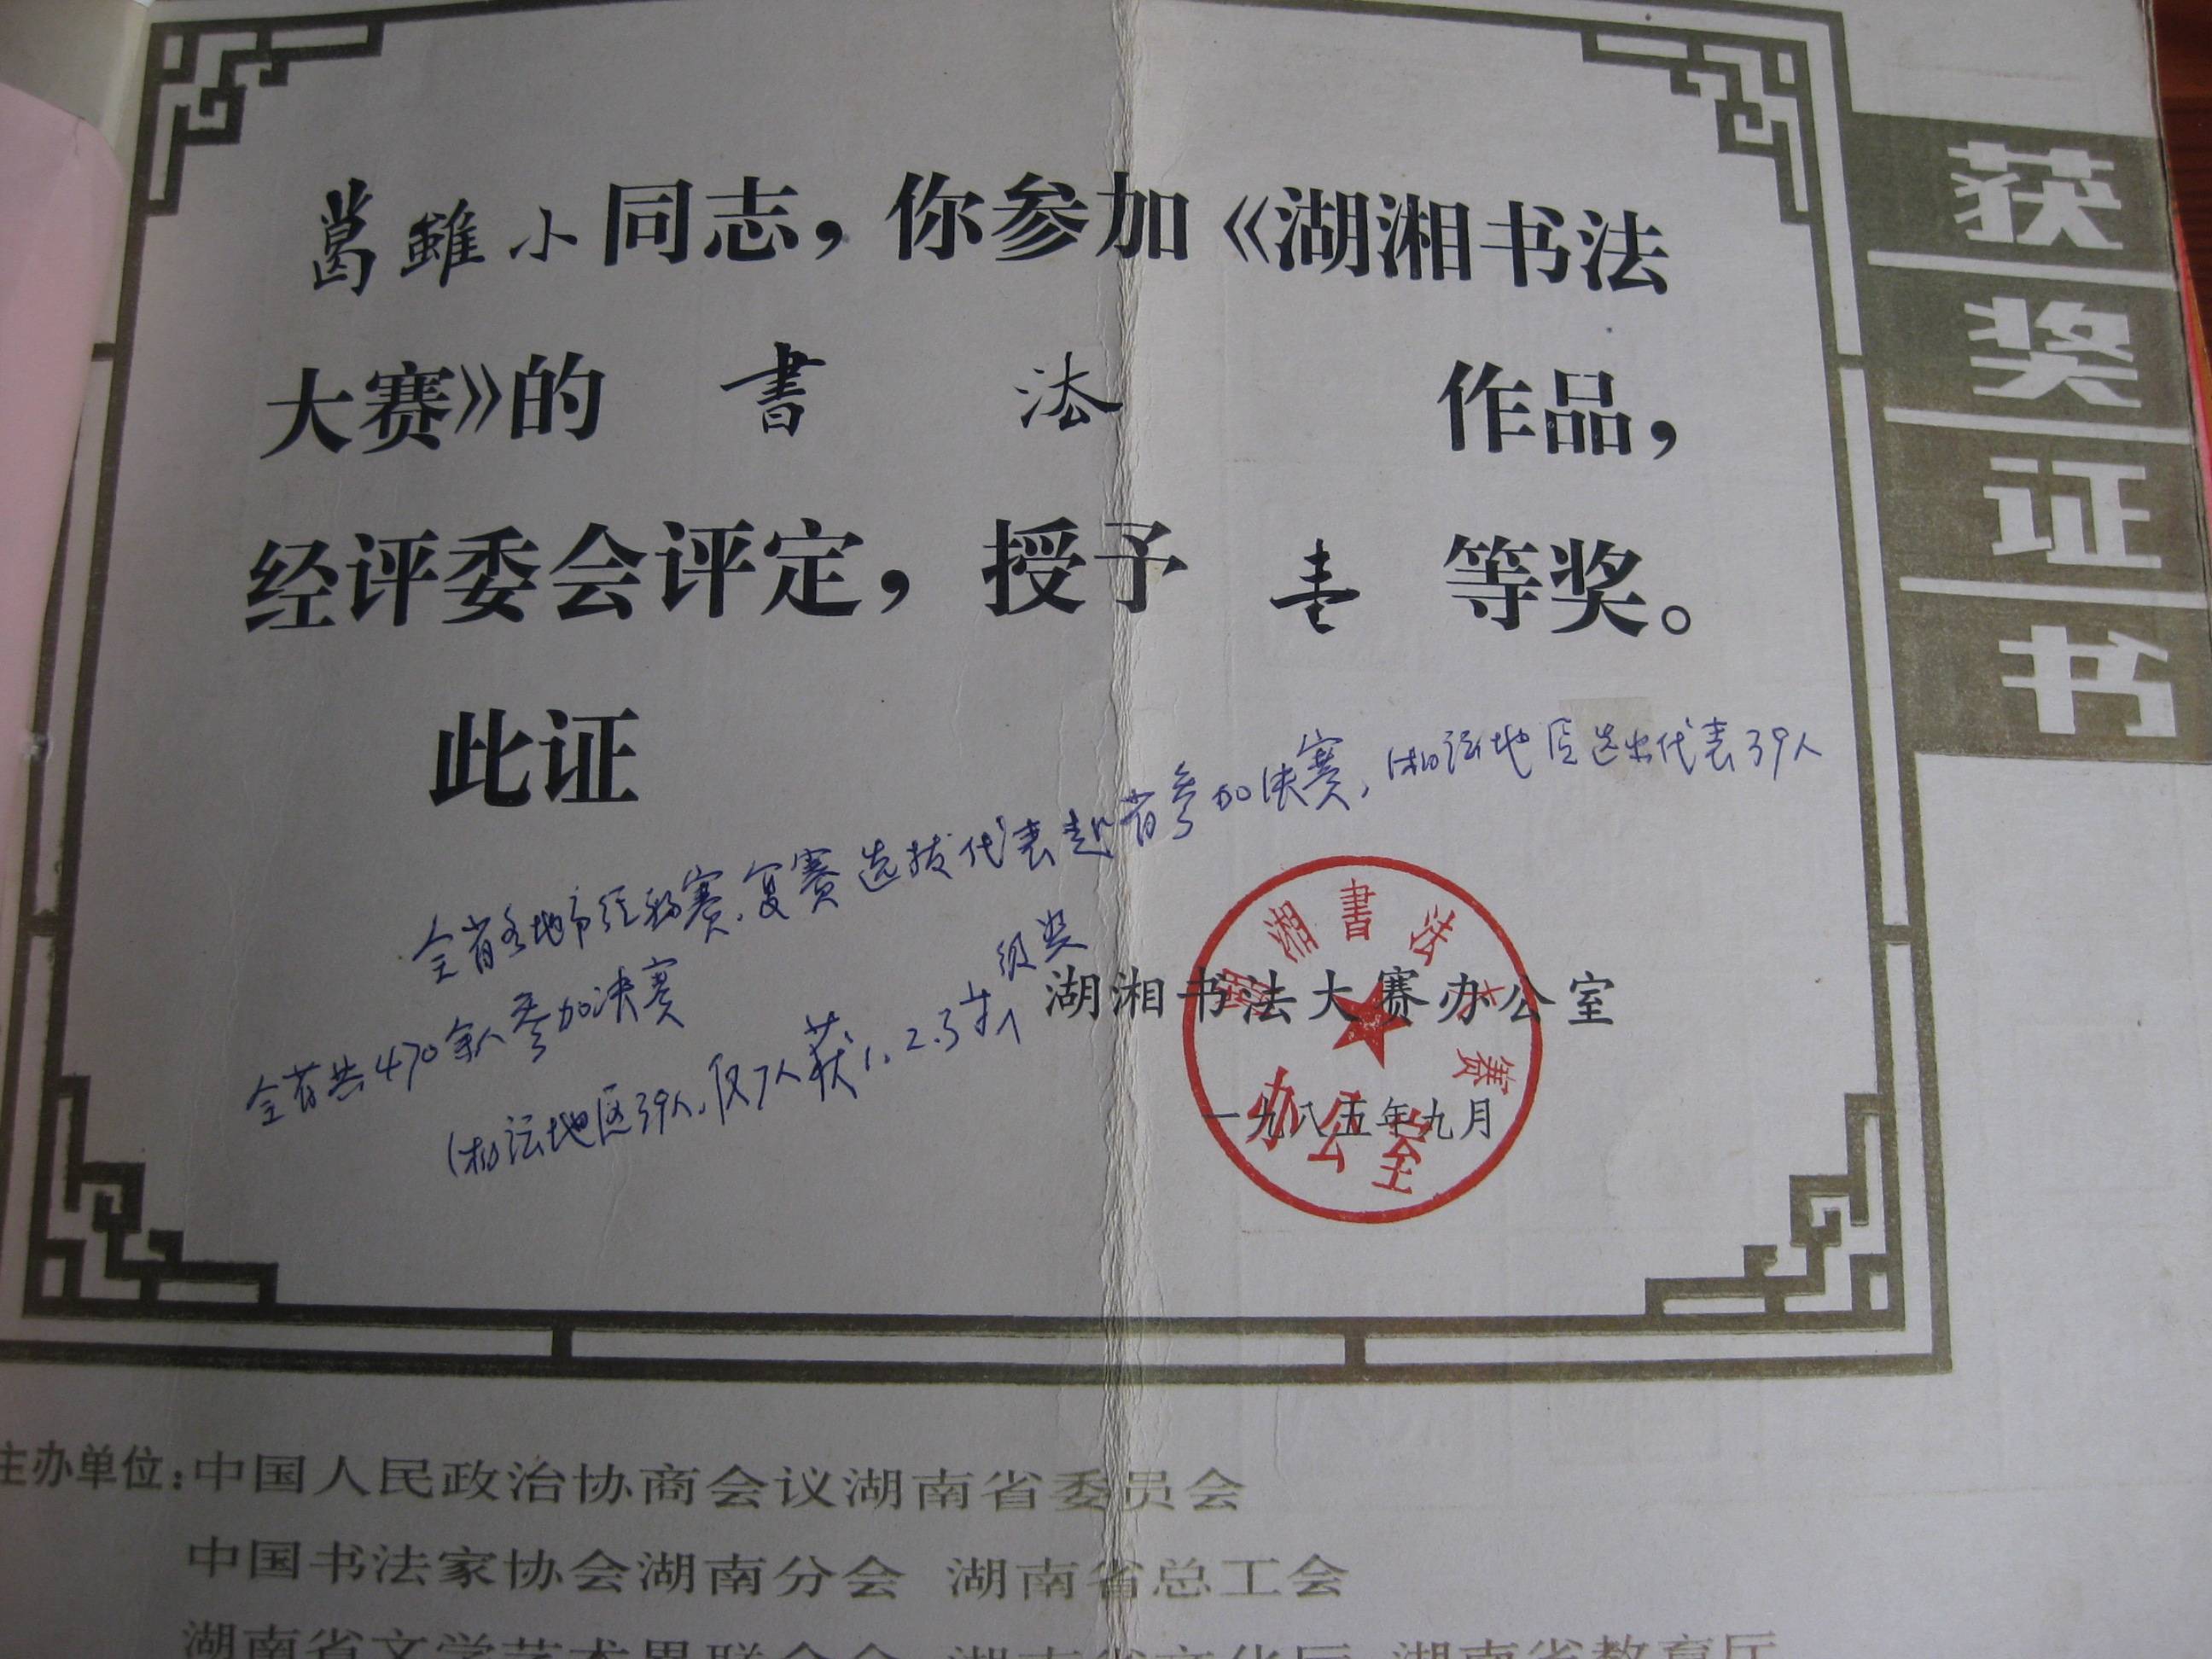 获奖证书
葛雖小同志，你参加《湖湘书法
大赛》的 書 法 作品，
经评委会评定，授予 壹 等奖。
此证
全省各地市经初赛、复赛选拔代表赴省参加决赛，湘潭地区选出代表39人
全省共470余人参加决赛
湘潭地区39人，仅7人获1.2.3等级奖
湖湘书法大赛办公室
一九八五年九月
湖湘書法大赛
办公室
主办单位：中国人民政治协商会议湖南省委员会
中国书法家协会湖南分会 湖南省总工会
湖南省文学艺术界联合会 湖南省文化厅 湖南省教育厅